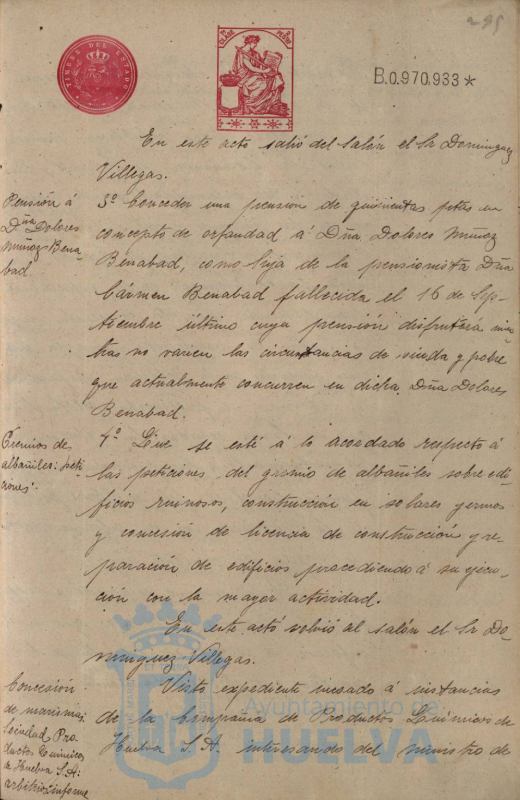 295
TIMBRE DEL ESTADO
B.0.970.933*
En este acto salió del salón el Sr Dominguez
Villegas.
Pensión á
Dña Dolores
Muñoz Bena-
bad
3º Conceder una pensión de quinientas ptas en
concepto de orfandad á Dña Dolores Muñoz
Benabad, como hija de la pensionista Dña
Cármen Benabad fallecida el 16 de Sep-
tiembre último cuya pensión disfrutara mien-
tras no varien las circunstancias de viuda y pobre
que actualmente concurren en dicha Dña Dolores
Benabad.
Gremios de
albañiles: peti-
ciones
4º Que se esté á lo acordado respecto á
las peticiones del gremio de albañiles sobre edi-
ficios ruinosos, construcción en solares yermos
y concesión de licencia de construcción y re-
paración de edificios procediendo á su ejecu-
ción con la mayor actividad.
En este actó volvió al salón el Sr Do-
minguez Villegas.
Concesión
de marismas:
Sociedad Pro-
ductos Quimicos
de Huelva S.A:
arbitrios: informe
Visto expediente incoado á instancias
de la Compañia de Productos Quimicos de
Huelva S.A. interesando del ministro de
Ayuntamiento de
HUELVA